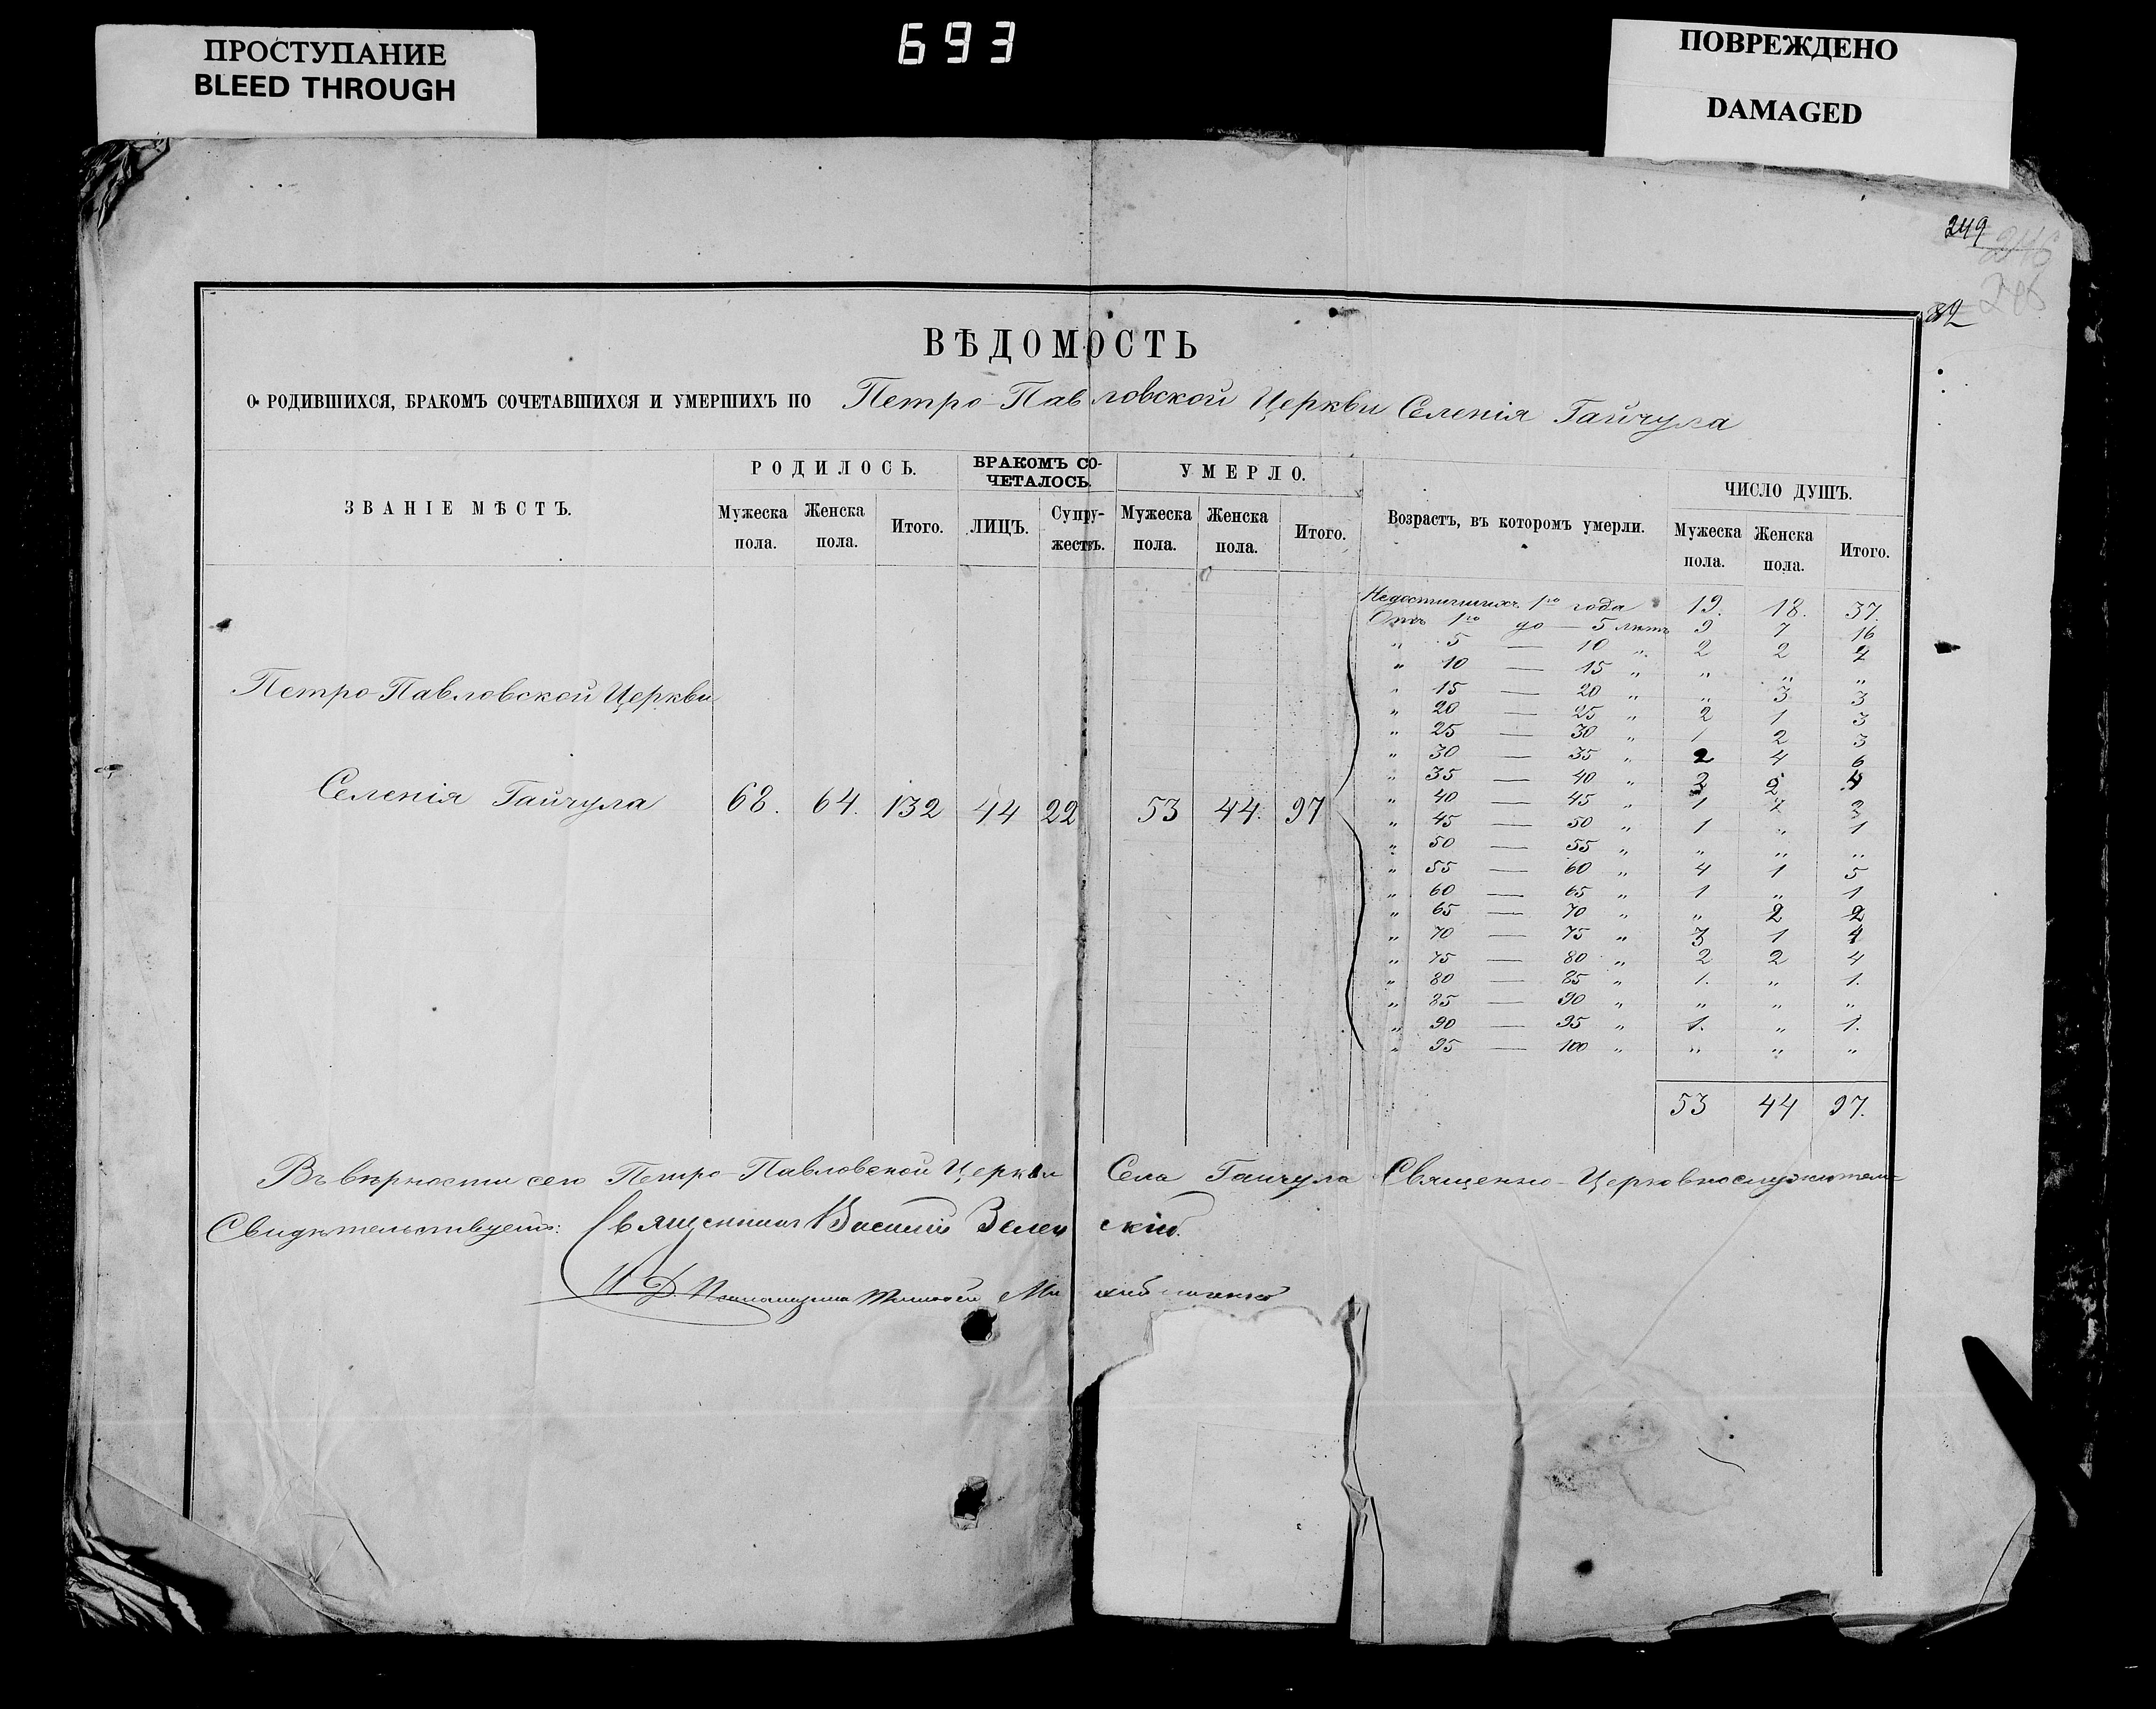 693
ПРОСТУПАНИЕ
BLEED THROUGH
ПОВРЕЖДЕНО
DAMAGED
249
246
82
ВѢДОМОСТЬ
О РОДИВШИХСЯ, БРАКОМЪ СОЧЕТАВШИХСЯ И УМЕРШИХЪ ПО Петро-Павловской Церкви Селенія Гайчула
ЗВАНІЕ МѢСТЪ. РОДИЛОСЬ. БРАКОМЪ СО-ЧЕТАЛОСЬ. УМЕРЛО. Возрастъ, въ которомъ умерли. ЧИСЛО ДУШЪ.
Мужеска пола. Женска пола. Итого. ЛИЦЪ. Супру-жествъ. Мужеска пола. Женска пола. Итого. Мужеска пола. Женска пола. Итого.
Недостигшихъ 1го года 19. 18. 37.
Отъ 1го до — 5 лѣтъ 9 7 16
„ 5 — 10 „ 2 2 4
„ 10 — 15 „ „ „ „
„ 15 — 20 „ „ 3 3
„ 20 — 25 „ 2 1 3
„ 25 — 30 „ 1 2 3
„ 30 — 35 „ 2 4 6
„ 35 — 40 „ 2 4
„ 40 — 45 „ 1 2 3
„ 45 — 50 „ 1 „ 1
„ 50 — 55 „ „ „ „
„ 55 — 60 „ 4 1 5
„ 60 — 65 „ 1 „ 1
„ 65 — 70 „ „ 2 2
„ 70 — 75 „ 3 1 4
„ 75 — 80 „ 2 2 4
„ 80 — 85 „ 1. „ 1.
„ 85 — 90 „ „ „ „
„ 90 — 95 „ 1. „ 1.
„ 95 — 100 „ „ „ „
53 44 97.
Петро-Павловской Церкви
Селенія Гайчула 68. 64. 132 44 22 53 44. 97
Въ вѣрности сего Петро-Павловской Церкви Села Гайчула Священно-Церковнослужители
Свидѣтельствуемъ: Священникъ Василій Зеленскій.
И. Д. Псаломщика